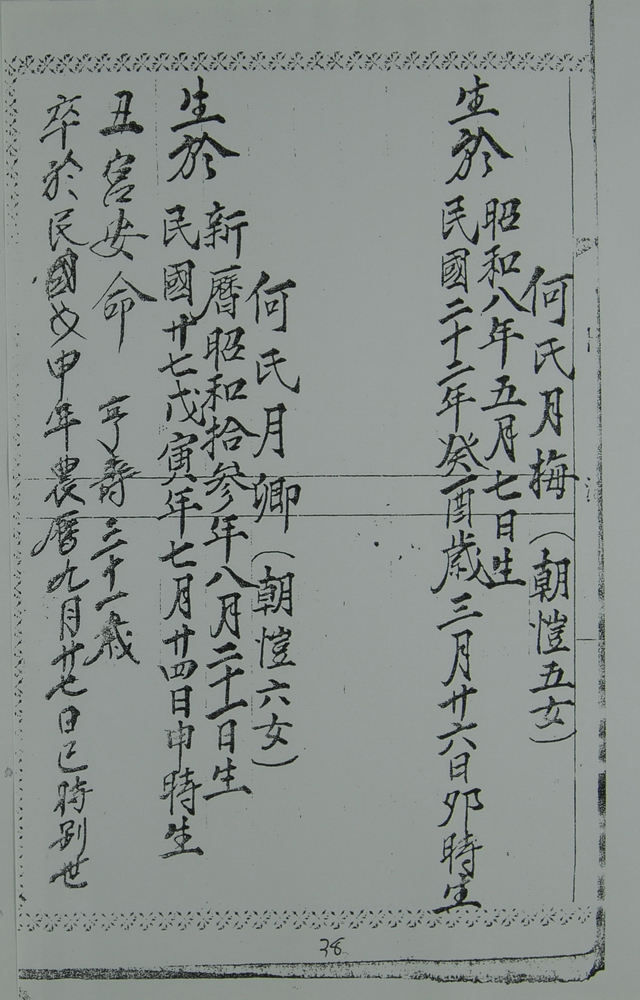 何氏月梅（朝愷五女）
生於
昭和八年五月七日生
民國二十二年癸酉歲三月廿六日夘時生
何氏月卿（朝愷六女）
生於
新曆昭和拾參年八月二十一日生
民國廿七戊寅年七月廿四日申時生
丑宮安命 亨壽三十一歲
卒於民國戊申年農曆九月廿七日巳時別世
38